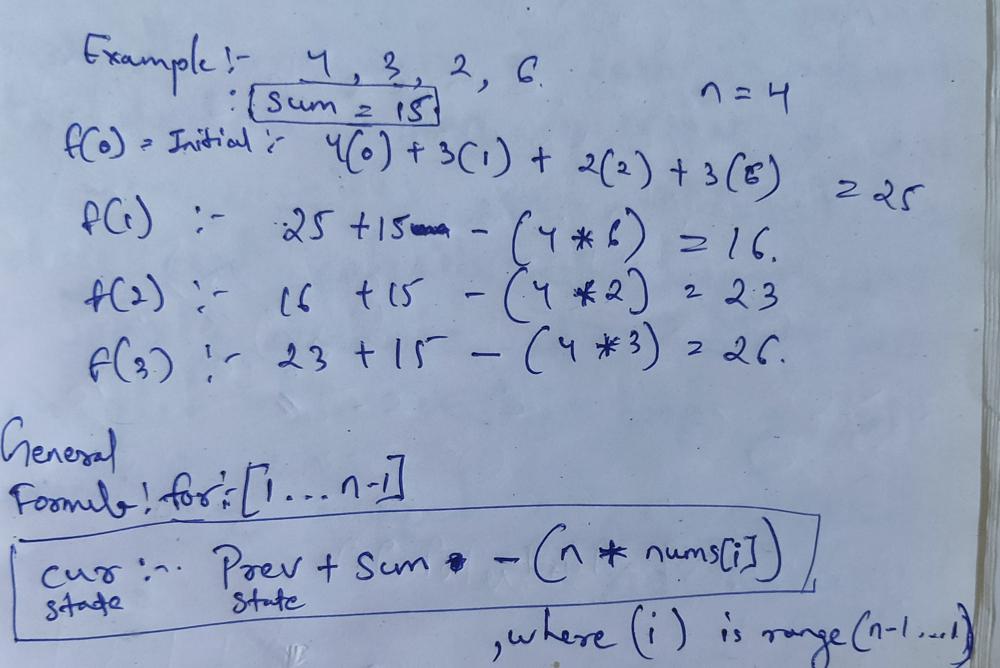 Example :- 4, 3, 2, 6.
: sum = 15 n = 4
f(0) = Initial :- 4(0) + 3(1) + 2(2) + 3(6) = 25
f(1) :- 25 + 15 - (4 * 6) = 16.
f(2) :- 16 + 15 - (4 * 2) = 23
f(3) :- 23 + 15 - (4 * 3) = 26.
General
Formula : for :- [1 ... n-1]
cur :- Prev + Sum - (n * nums[i])
state state
, where (i) is range (n-1 ... 1)